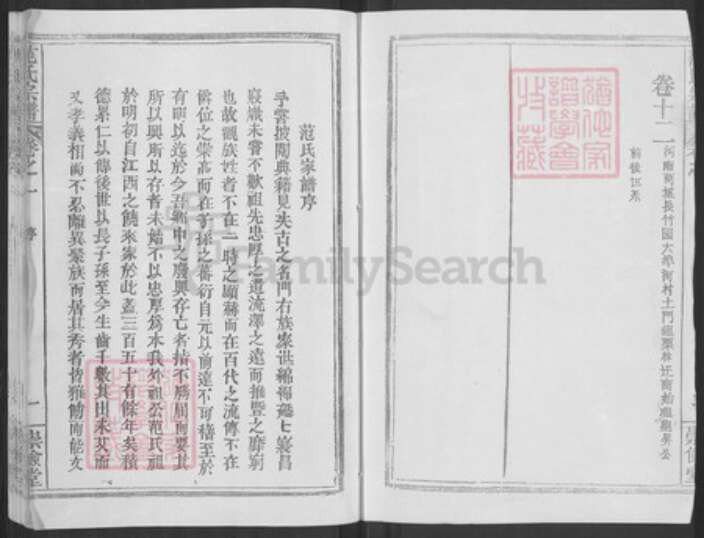 卷十二
前後世系
范氏家譜序
予嘗披閱典籍見夫古之名門右族家世綿衍熾昌
寢熾未嘗不歎祖先忠厚之遺流澤之遠而推暨之靡窮
也故觀族姓者不在一時之顯赫而在百代之流傳不在
爵位之崇高而在子孫之蕃衍自元以前遠不可稽至於
有明以迄於今吾鄉中之廢興存亡者指不勝屈而要其
所以興所以存者未始不以忠厚為本我外祖公范氏祖
於明初自江西之饒來家於此蓋三百五十有餘年矣積
德累仁以傳後世以長子孫至今生齒千數其由來久而
又孝義相尚不忍離異聚族而居其秀者皆雅飭而能文
范氏宗譜
卷之一
序
一
崇儉堂
FamilySearch